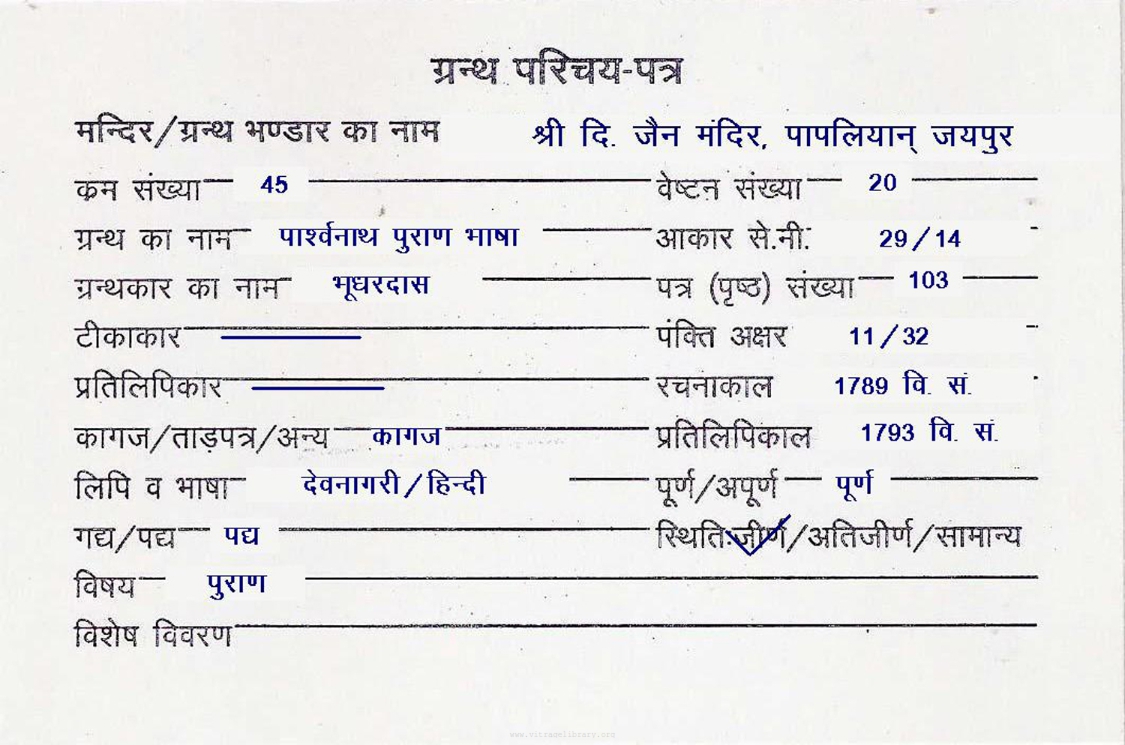 ग्रन्थ परिचय-पत्र
मन्दिर/ग्रन्थ भण्डार का नाम श्री दि. जैन मंदिर, पापलियान् जयपुर
क्रम संख्या 45 वेष्टन संख्या 20
ग्रन्थ का नाम पार्श्वनाथ पुराण भाषा आकार से.मी. 29/14
ग्रन्थकार का नाम भूधरदास पत्र (पृष्ठ) संख्या 103
टीकाकार पंक्ति अक्षर 11/32
प्रतिलिपिकार रचनाकाल 1789 वि. सं.
कागज/ताड़पत्र/अन्य कागज प्रतिलिपिकाल 1793 वि. सं.
लिपि व भाषा देवनागरी/हिन्दी पूर्ण/अपूर्ण पूर्ण
गद्य/पद्य पद्य स्थितिः जीर्ण/अतिजीर्ण/सामान्य
विषय पुराण
विशेष विवरण